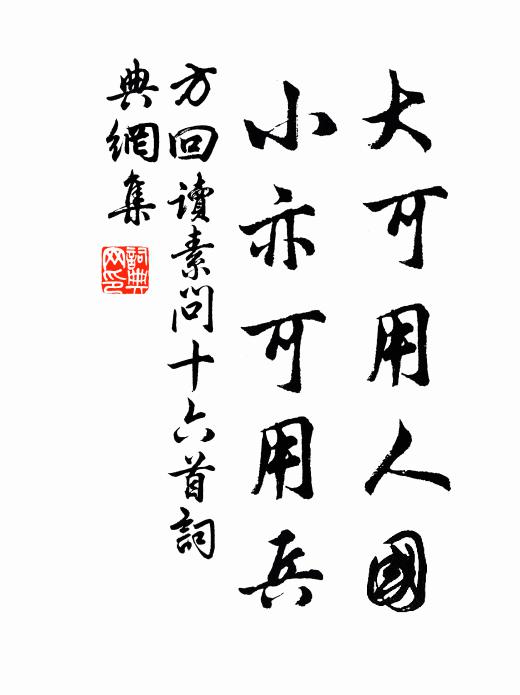 大可用人國
小亦可用兵
方回讀素問十六首詞
典網集
詞典
网印